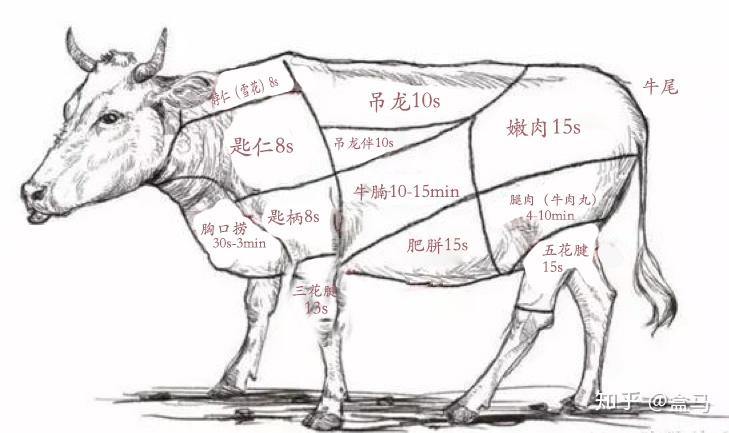 脖仁（雪花）8s
吊龙10s
牛尾
匙仁8s
吊龙伴10s
嫩肉15s
牛腩10-15min
腿肉（牛肉丸）
4-10min
胸口捞
30s-3min
匙柄8s
肥胼15s
五花腱
15s
三花腱
13s
知乎 @盒马